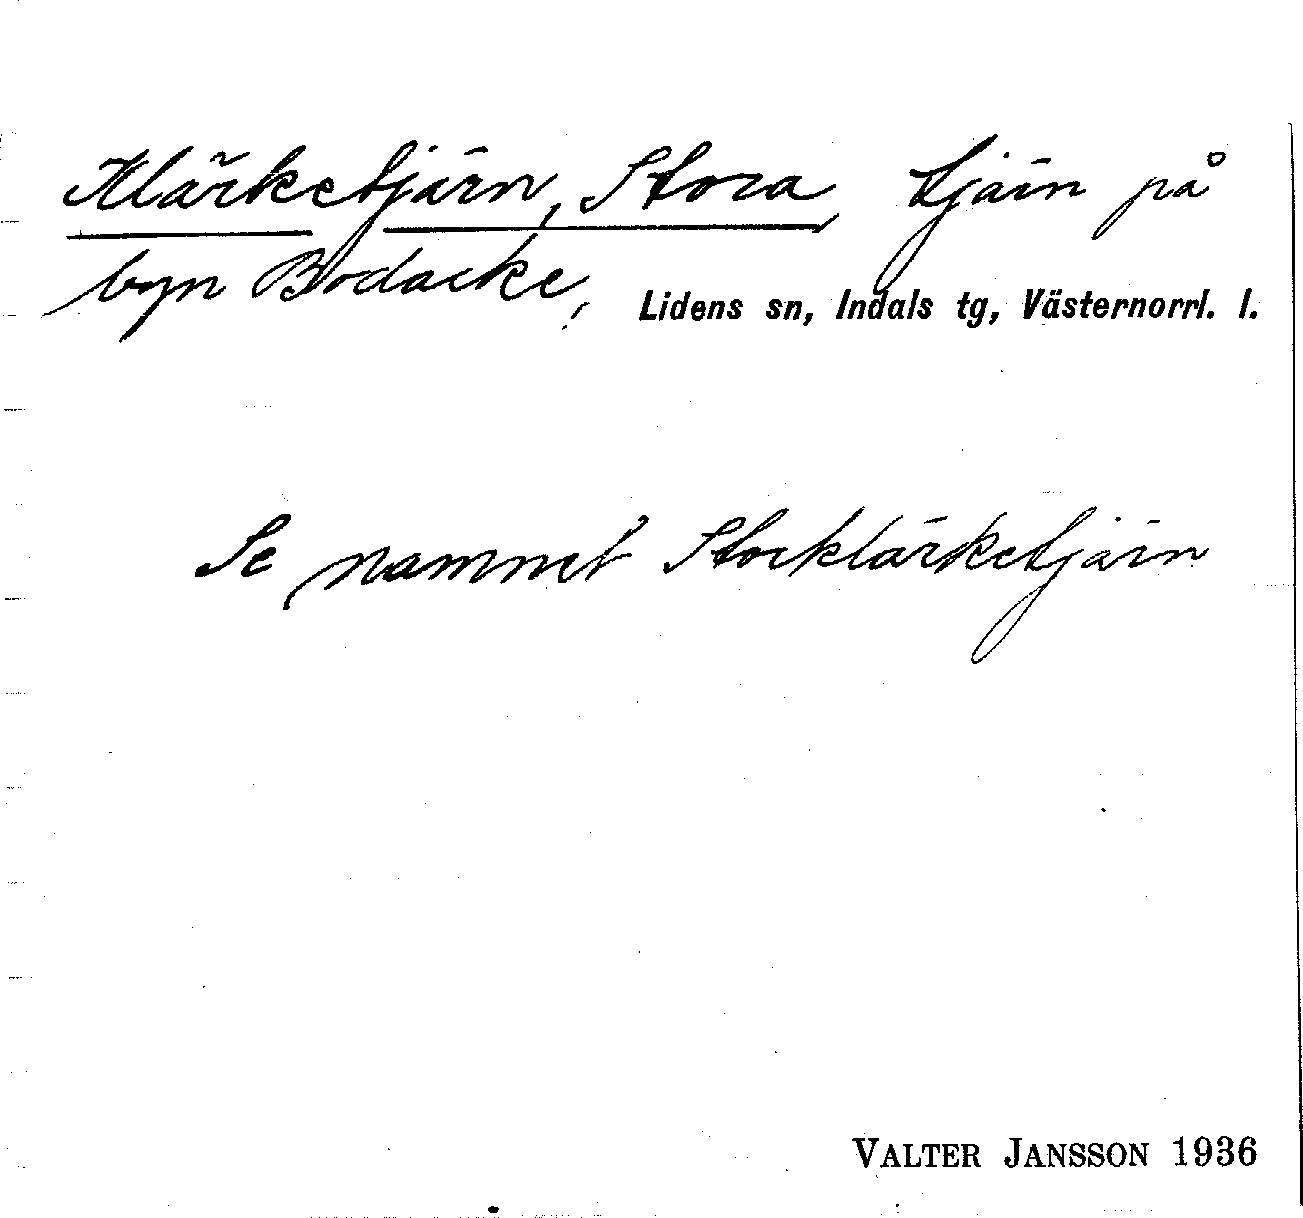 Klärketjärn, Stora, tjärn på
byn Bodacke, Lidens sn, Indals tg, Västernorrl. l.
Se namnet Stocklärketjärn
VALTER JANSSON 1936